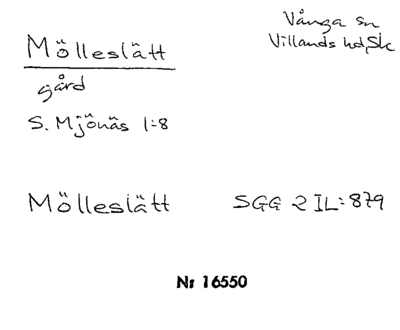 Vånga sn
Villands hd, Sk
Mölleslätt
gård
S. Mjönäs 1:8
Mölleslätt SGG 2 IL:879
Nr 16550